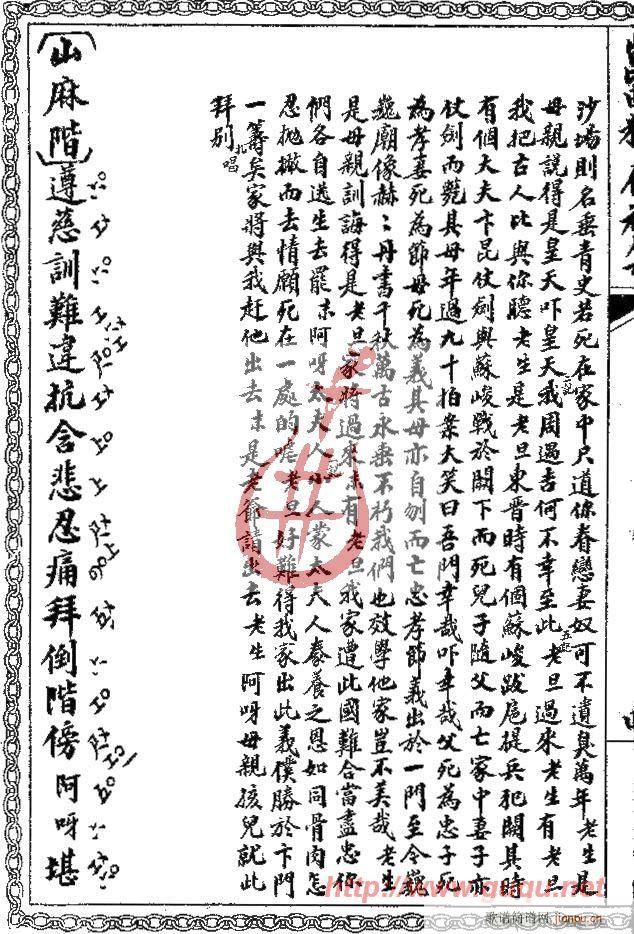 沙場則名垂青史若死在家中只道你眷戀妻奴可不遺臭萬年老生是
母親說得是皇天吓皇天我周遇吉何不幸至此老旦過來老生有老旦
我把古人比與你聽老生是老旦東晉時有個蘇峻跋扈提兵犯闕其時
有個大夫卞昆仗劍與蘇峻戰於闕下而死兒子隨父而亡家中妻子亦
仗劍而薨其母年過九十拍案大笑曰吾門幸哉吓幸哉父死為忠子死
為孝妻死為節母死為義其母亦自刎而亡忠孝節義出於一門至今巍
巍廟像赫：丹書千秋萬古永垂不朽我們也效學他家豈不美哉老生
是母親訓誨得是老旦家將過來末有老旦我家遭此國難合當盡忠你
們各自逃生去罷末阿呀太夫人小人蒙太夫人豢養之恩如同骨肉怎
忍拋撇而去情願死在一處的嗄老旦好難得我家出此義僕勝於卞門
一籌矣家將與我赶他出去末是老爺請出去老生阿呀母親孩兒就此
拜别唱
山麻階遵慈訓難違抗含悲忍痛拜倒階傍阿呀堪
http://www.guqu.net
歌谱简谱网
jianpu.cn